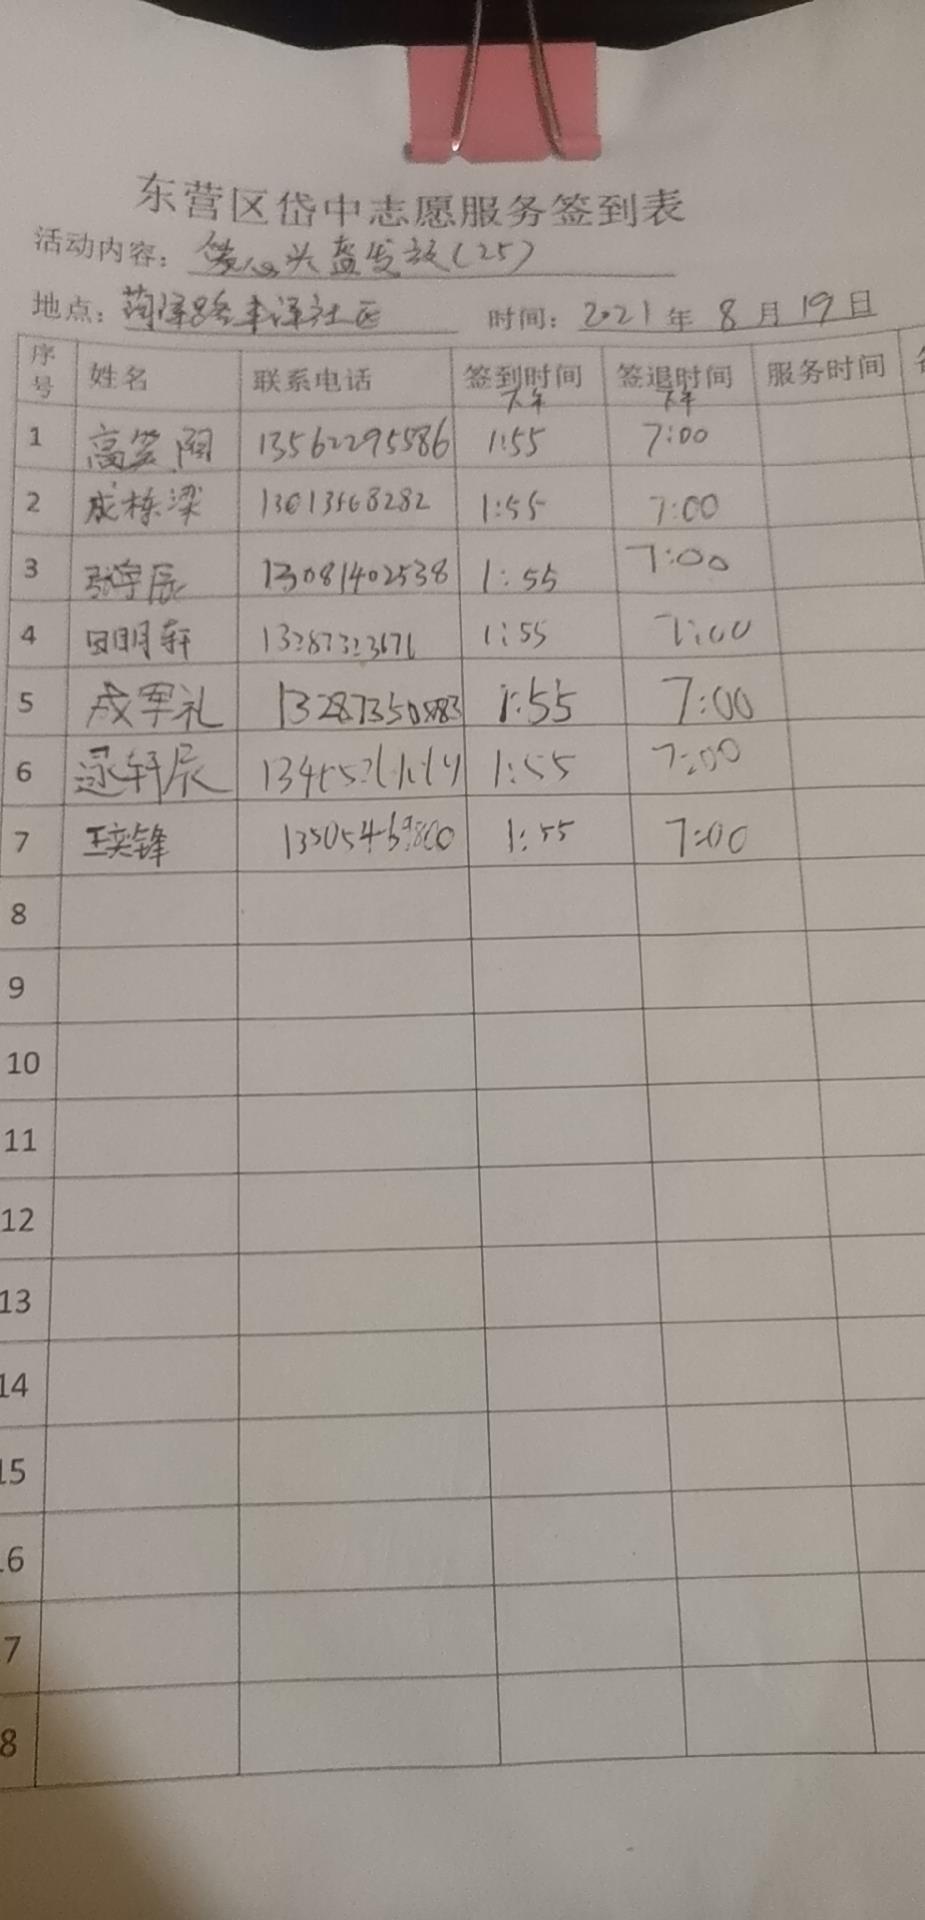 东营区岱中志愿服务签到表
活动内容：爱心头盔发放(25)
地点：菏泽路丰泽社区 时间：2021年8月19日
序号 姓名 联系电话 签到时间 签退时间 服务时间
下午 下午
1 高 13562295586 1:55 7:00
2 成栋梁 13013568282 1:55 7:00
3 张宇辰 13081402538 1:55 7:00
4 田明轩 1:55 7:00
5 成军礼 1:55 7:00
6 轩辰 1:55 7:00
7 王奕锋 13505469800 1:55 7:00
8
9
10
11
12
13
14
15
16
17
18